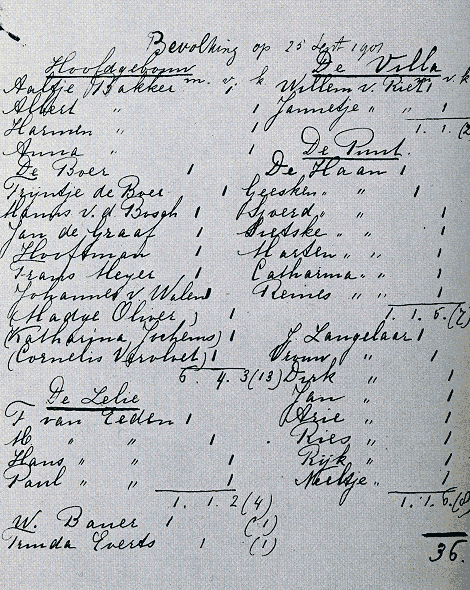 Bevolking op 25 Sept 1901
Hoofdgebouw m. v. k
Aaltje Bakker 1
Albert " 1
Harmen " 1
Anna " 1
De Boer 1
Trijntje de Boer 1
Hanns v. d. Bosch 1
Jan de Graaf 1
Hooftman 1
Frans Meyer 1
Johannes v Walen 1
(Madye Oliver) 1
(Katharina Jochems) 1
(Cornelis Vervloet) 1
6. 4. 3 (13)
De Lelie
F van Eeden 1
M " " 1
Hans " " 1
Paul " " 1
1. 1. 2 (4)
W. Bauer 1 (1)
Trinda Everts 1 (1)
De Villa v k
Willem v. Riet 1
Jannetje " " 1
1. 1. (2
De Punt.
De Haan 1
Geesken " " 1
Sjoerd " " 1
Sietske " " 1
Marten " " 1
Catharina " " 1
Reinés " " 1
1. 1. 5. (7)
J. Langelaar 1
Vrouw " 1
Dirk " 1
Jan " 1
Arie " 1
Kies " 1
Rijk " 1
Neeltje " 1
1. 1. 6. (8)
36.